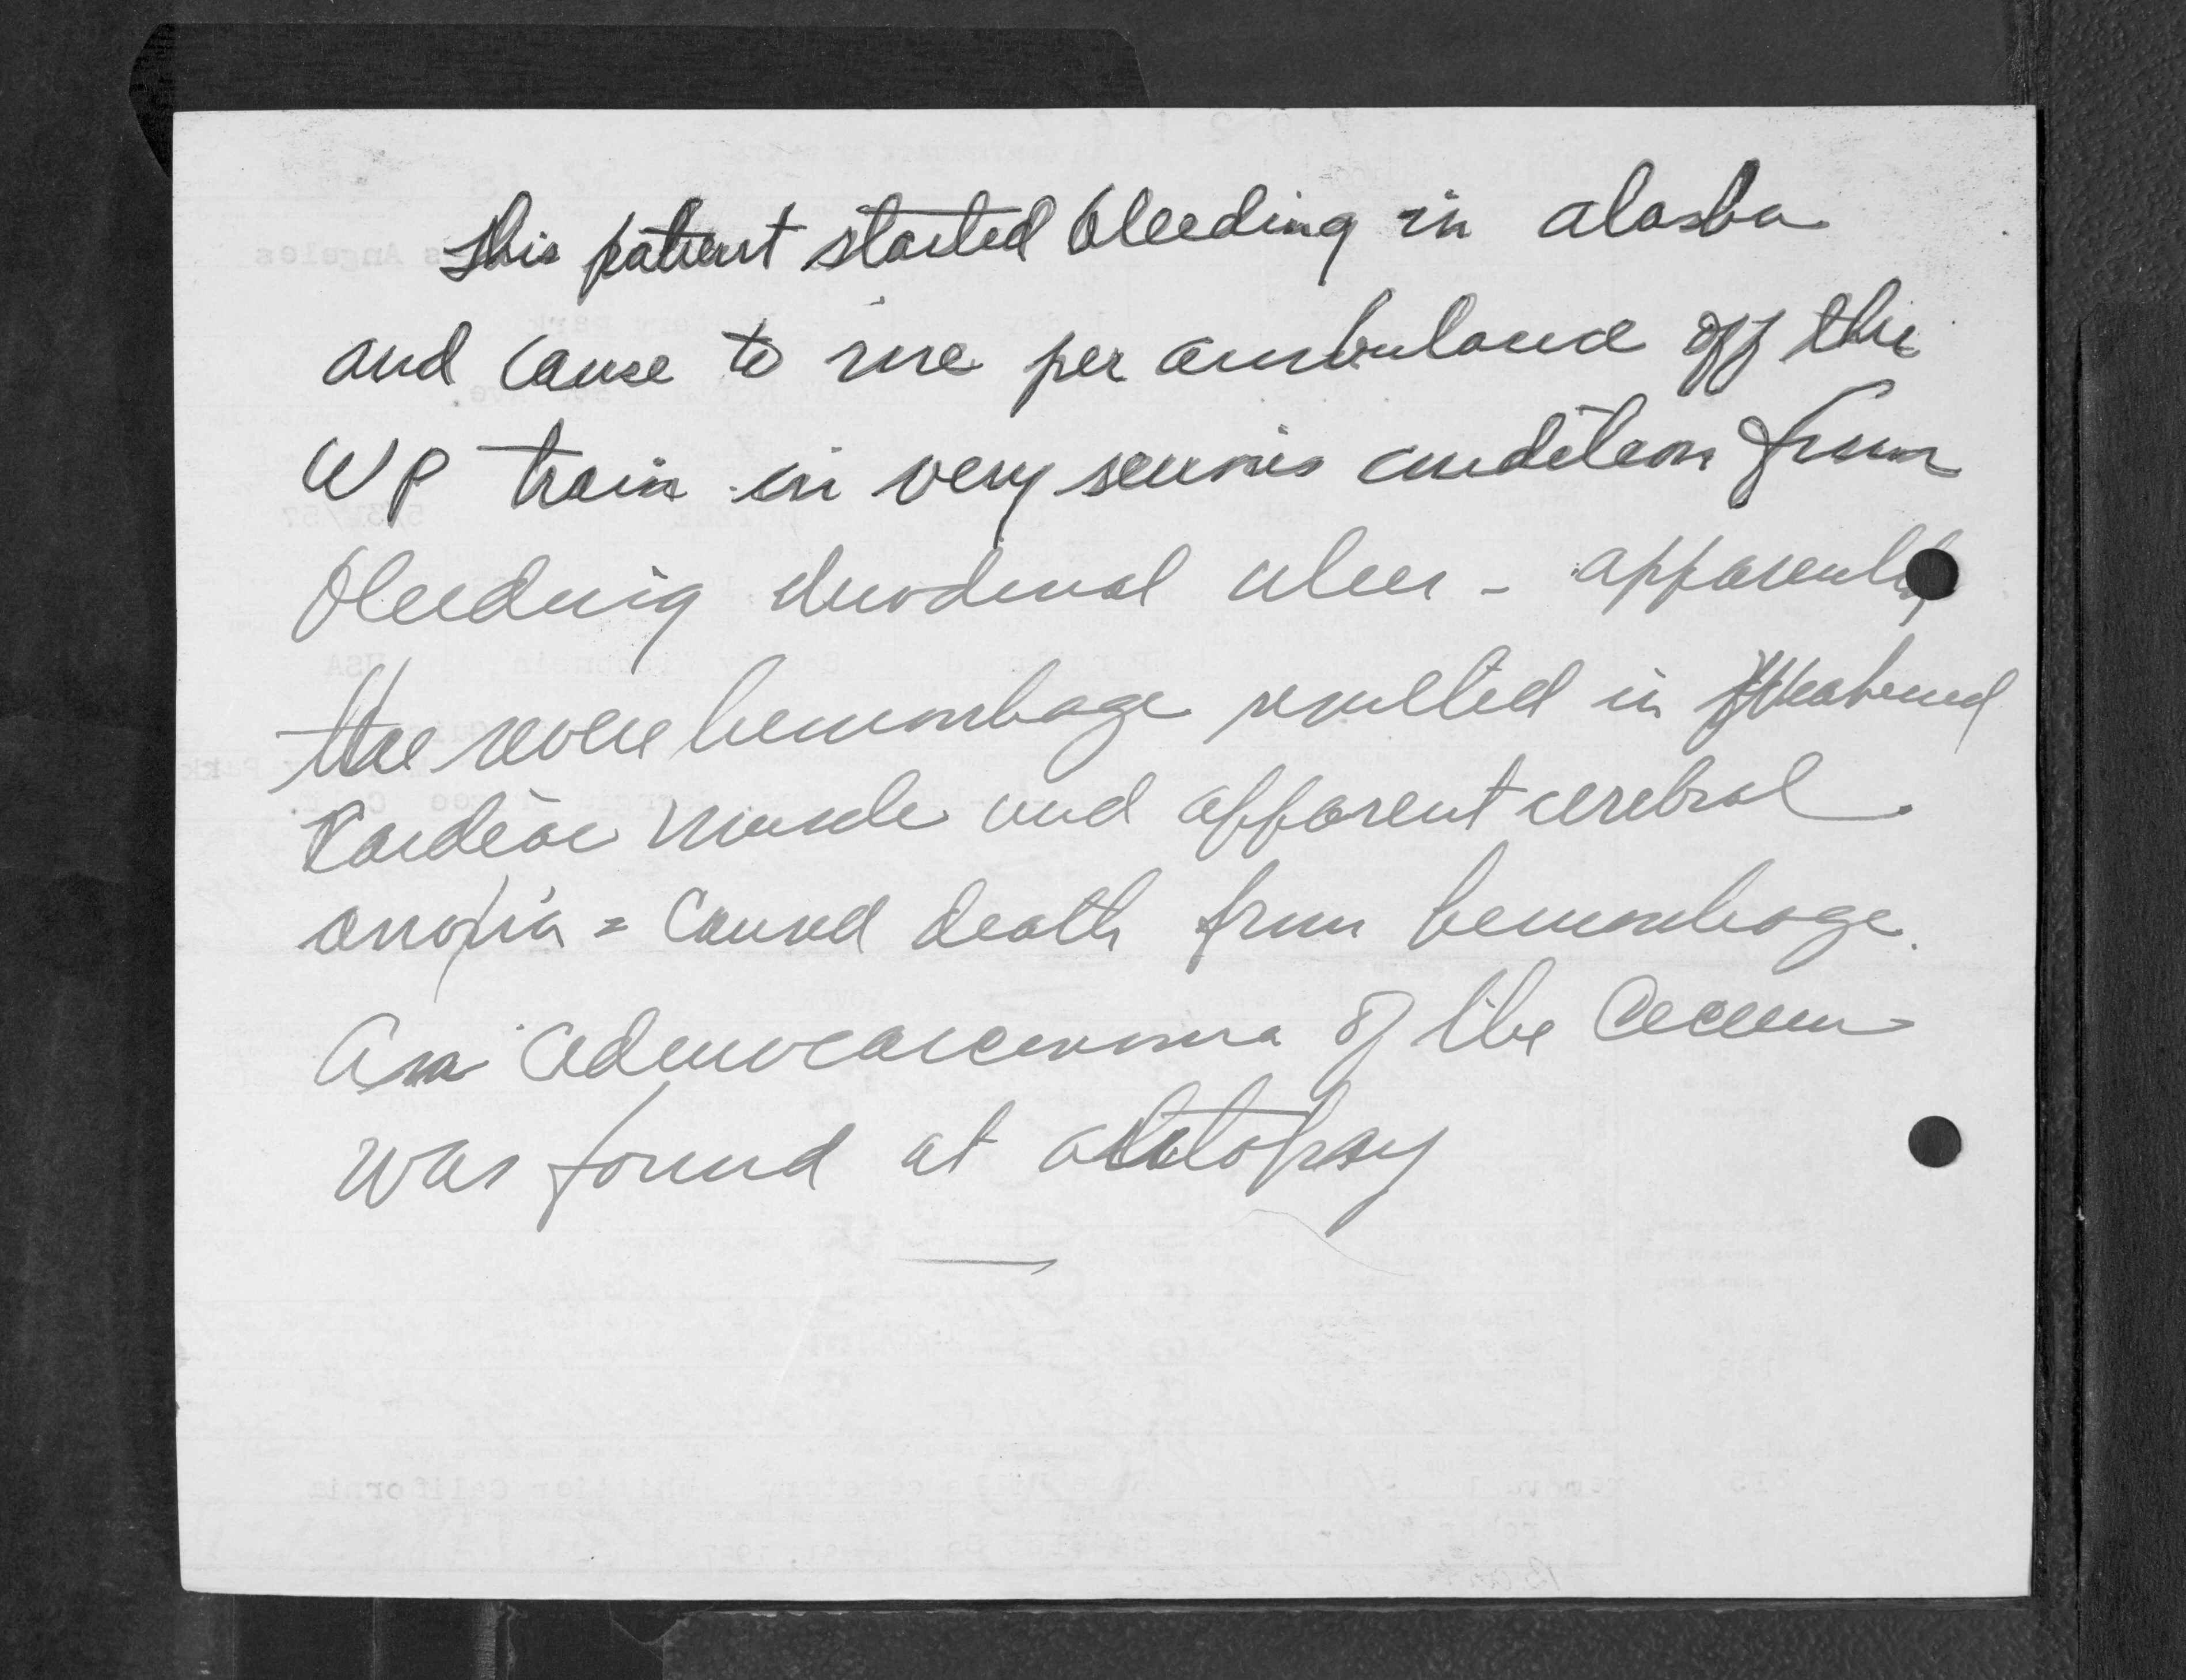 This patient started bleeding in Alaska
and came to me per ambulance off the
WP train in very serious condition from
bleeding duodenal ulcer - apparently
the severe hemorrhage resulted in weakened
cardiac muscle and apparent cerebral
anoxia = caused death from hemorrhage.
An adenocarcinoma of the Cecum
was found at autopsy